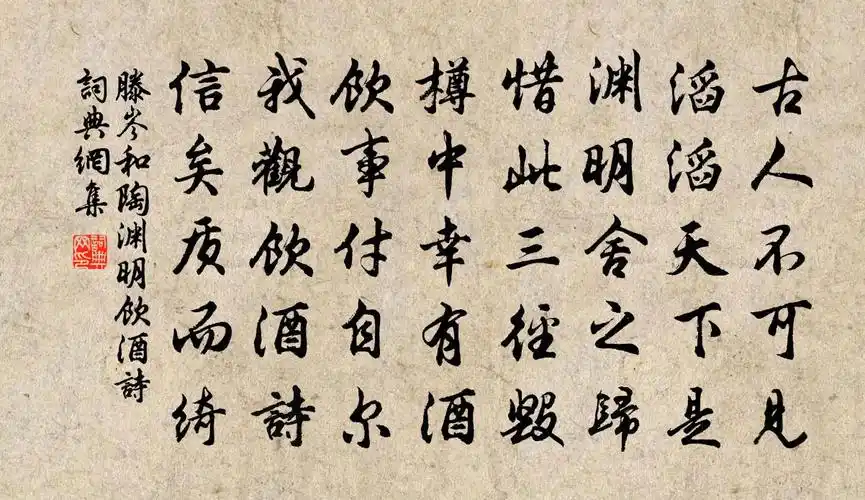 古人不可見
滔滔天下是
渊明舍之歸
惜此三徑毀
樽中幸有酒
飲事付自尔
我觀飲酒詩
信矣质而綺
滕岑和陶渊明飲酒詩
詞典網集